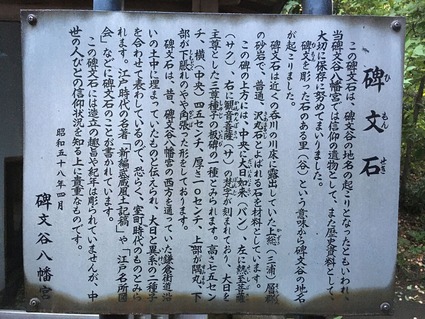 碑文石
ひもんせき
この碑文石は、碑文谷の地名の起こりとなったともいわれ、
当碑文谷八幡宮では信仰の遺物として、また歴史資料として、
大切に保存に努めてまいりました。
碑文を彫った石のある里（谷）という意味から碑文谷の地名
が起こりました。
碑文石は近くの呑川の川床に露出していた上総（三浦）層群
の砂岩で、普通、沢丸石とよばれる石を材料としています。
この碑の上方には、中央に大日如来（バン）左に勢至菩薩
（サク）、右に観音菩薩（サ）の梵字が刻まれており、大日を
主尊とした三尊種子の板碑の一種とみられます。高さ七五セン
チ、横（中央）四五センチ、厚さ一〇センチ、上部が隅丸、下
部が下脹れのやや角張った形をしております。
碑文石は、昔、碑文谷八幡宮の西方を通っていた鎌倉街道沿
いの土中に埋まっていたものと伝えられ、大日と異系の二種子
を合わせて表わしているので、恐らく、室町時代のものとみら
れます。江戸時代の名著「新編武蔵風土記稿」や「江戸名所図
会」などに碑文石のことが書かれています。
この碑文石には造立の趣旨や紀年は彫られていませんが、中
世の人びとの信仰状況を知る上に貴重なものです。
昭和五十八年四月
碑文谷八幡宮